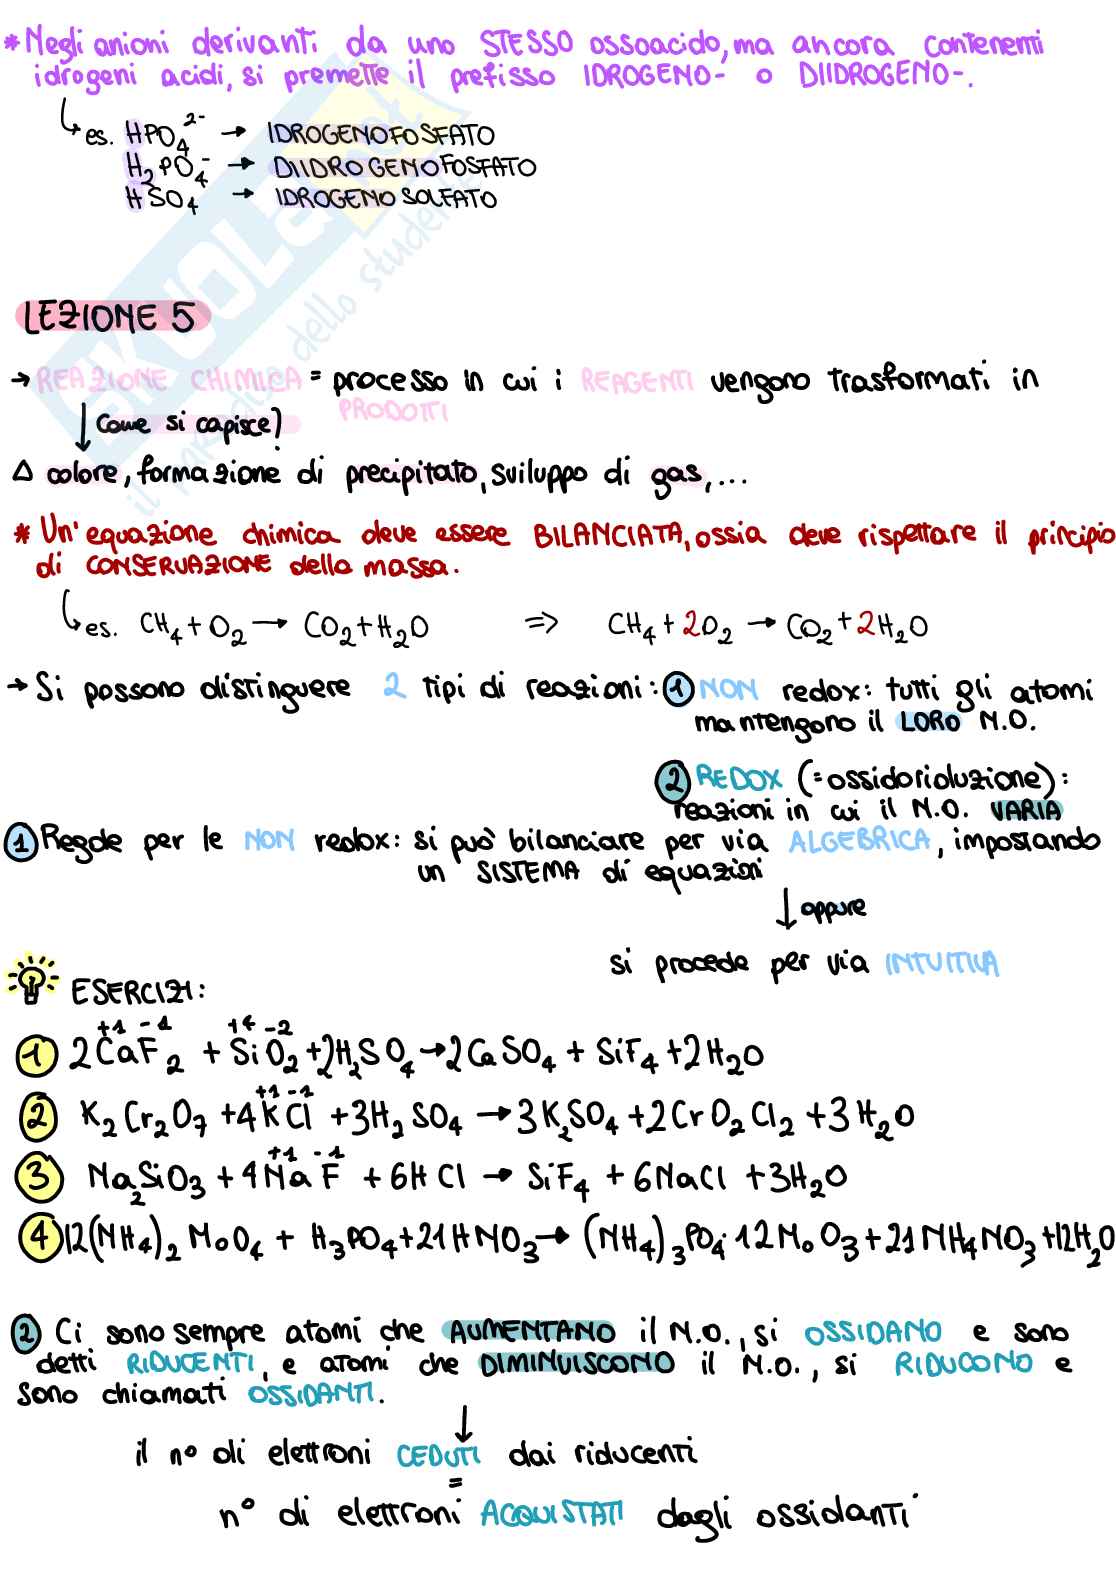 * Negli anioni derivanti da uno STESSO ossoacido, ma ancora contenenti
idrogeni acidi, si premette il prefisso IDROGENO- o DIIDROGENO-.
es. HPO₄²⁻ → IDROGENOFOSFATO
H₂PO₄⁻ → DIIDROGENOFOSFATO
HSO₄ → IDROGENO SOLFATO
LEZIONE 5
→ REAZIONE CHIMICA = processo in cui i REAGENTI vengono trasformati in
PRODOTTI
↓ Come si capisce?
Δ colore, formazione di precipitato, sviluppo di gas, ...
* Un'equazione chimica deve essere BILANCIATA, ossia deve rispettare il principio
di CONSERVAZIONE della massa.
es. CH₄ + O₂ → CO₂ + H₂O => CH₄ + 2O₂ → CO₂ + 2H₂O
→ Si possono distinguere 2 tipi di reazioni: 1 NON redox: tutti gli atomi
mantengono il LORO N.O.
2 REDOX (= ossidorioluzione):
reazioni in cui il N.O. VARIA
1 Regole per le NON redox: si può bilanciare per via ALGEBRICA, impostando
un SISTEMA di equazioni
↓ oppure
si procede per via INTUITIVA
ESERCIZI:
+1 -1 +4 -2
1 2CaF₂ + SiO₂ + 2H₂SO₄ → 2CaSO₄ + SiF₄ + 2H₂O
+1 -1
2 K₂Cr₂O₇ + 4KCl + 3H₂SO₄ → 3K₂SO₄ + 2CrO₂Cl₂ + 3H₂O
+1 -1
3 Na₂SiO₃ + 4NaF + 6HCl → SiF₄ + 6NaCl + 3H₂O
4 12(NH₄)₂MoO₄ + H₃PO₄ + 21HNO₃ → (NH₄)₃PO₄·12MoO₃ + 21NH₄NO₃ + 12H₂O
2 Ci sono sempre atomi che AUMENTANO il N.O., si OSSIDANO e sono
detti RIDUCENTI, e atomi che DIMINUISCONO il N.O., si RIDUCONO e
sono chiamati OSSIDANTI.
↓
il n° di elettroni CEDUTI dai riducenti
=
n° di elettroni ACQUISTATI dagli ossidanti
SKUOLA.net
il paradiso dello studente